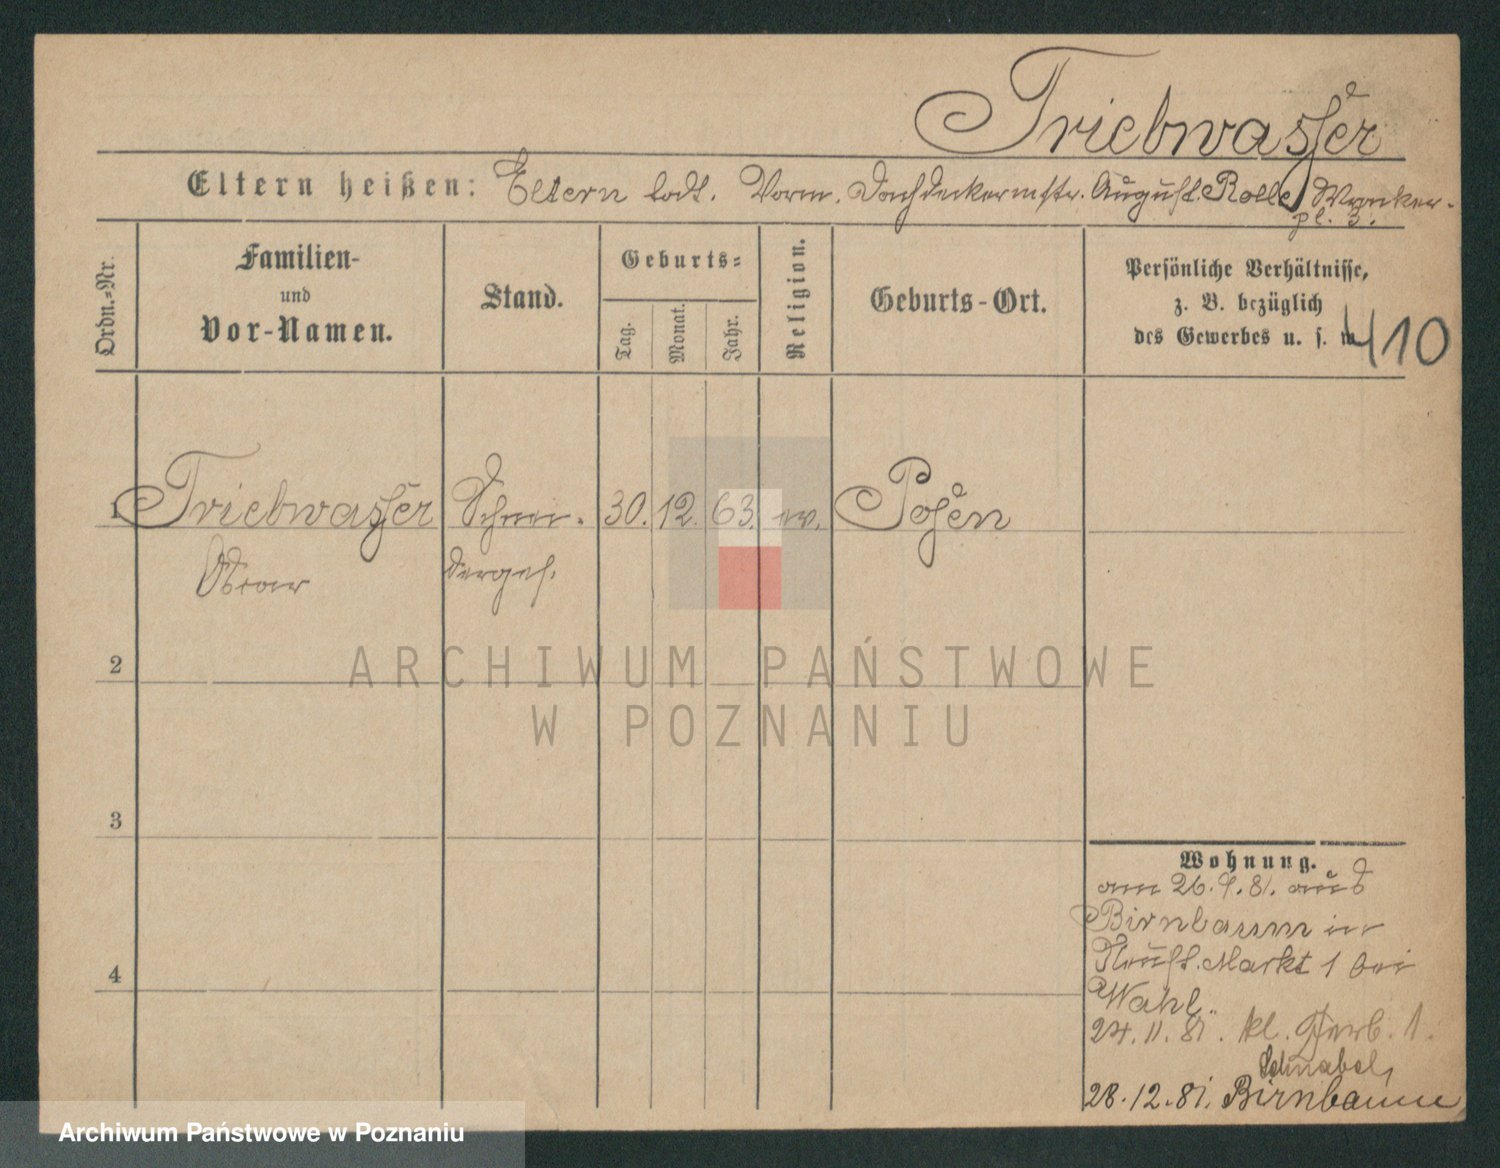 Triebwasser
Eltern heißen: Eltern todt. Vorm. Dachdeckermstr. August Rolle, Wronker-
pl. 3.
Ordn.-Nr.
Familien-
und
Vor-Namen.
Stand.
Geburts-
Tag.
Monat.
Jahr.
Religion.
Geburts-Ort.
Persönliche Verhältnisse,
z. B. bezüglich
des Gewerbes u. s. w.
410
1 Triebwasser Schnei- 30. 12. 63. ev. Posen
Oscar derges.
2
3
4
Wohnung.
am 26. 9. 81. aus
Birnbaum in
Neust. Markt 1 bei
Wahl.
24. 11. 81. kl. Gerb. 1.
Schnabel,
28. 12. 81. Birnbaum
ARCHIWUM PAŃSTWOWE
W POZNANIU
Archiwum Państwowe w Poznaniu